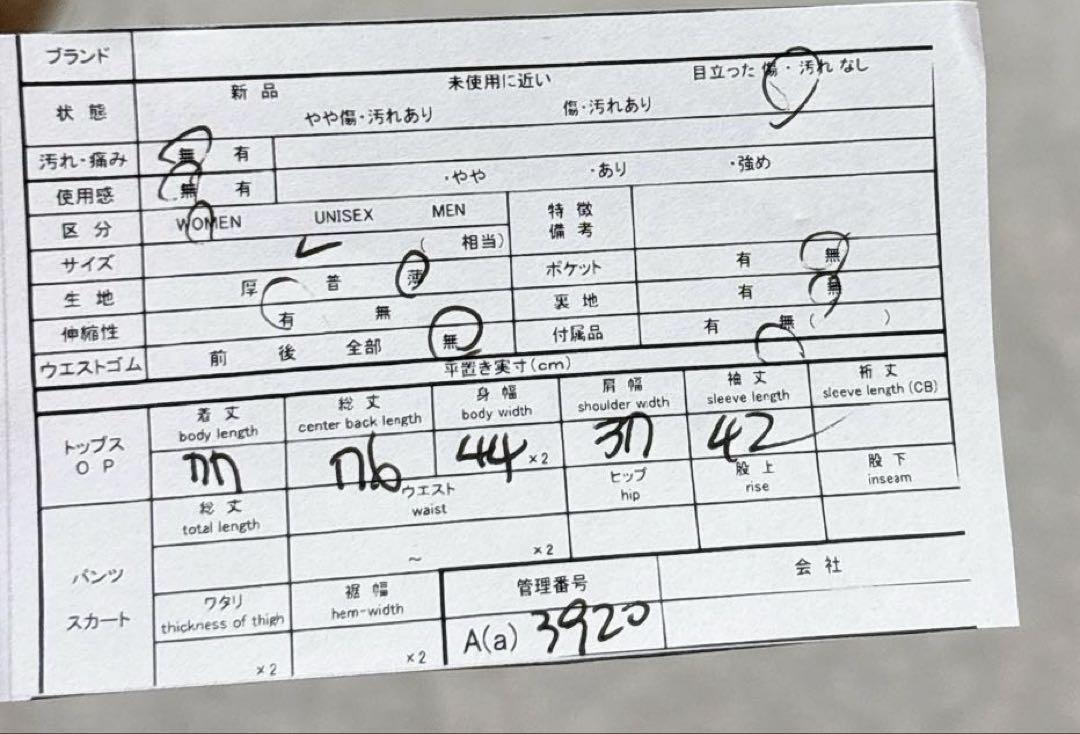 ブランド
状態 新品 未使用に近い 目立った傷・汚れなし
やや傷・汚れあり 傷・汚れあり
汚れ・痛み 無 有
使用感 無 有 ・やや ・あり ・強め
区分 WOMEN UNISEX MEN 特徴備考
サイズ ( 相当) ポケット 有 無
生地 厚 普 薄 裏地 有 無
伸縮性 有 無 付属品 有 無 ( )
ウエストゴム 前 後 全部 無
平置き実寸(cm)
トップス OP 着丈 総丈 身幅 肩幅 袖丈 裄丈
body length center back length body width shoulder wdth sleeve length sleeve length (CB)
77 76 44 ×2 37 42
パンツ スカート 総丈 ウエスト ヒップ 股上 股下
total length waist hip rise inseam
~ ×2
ワタリ 裾幅 管理番号 会社
thickness of thigh hem-width
×2 ×2 A(a) 3920